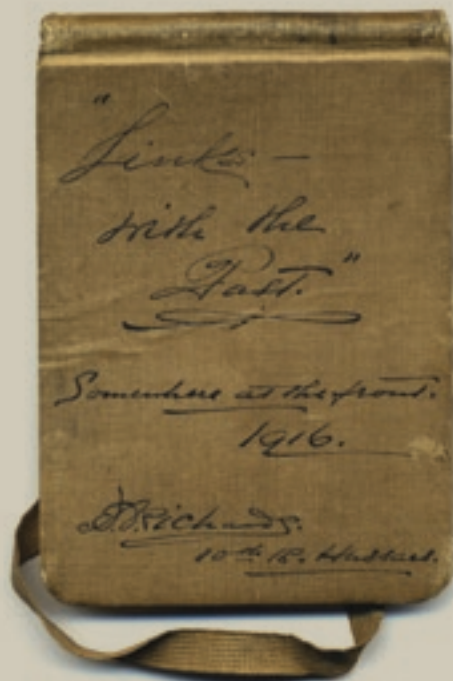 "Links –
with the
Past."
Somewhere at the front.
1916.
Richards.
10th R. Hussars.